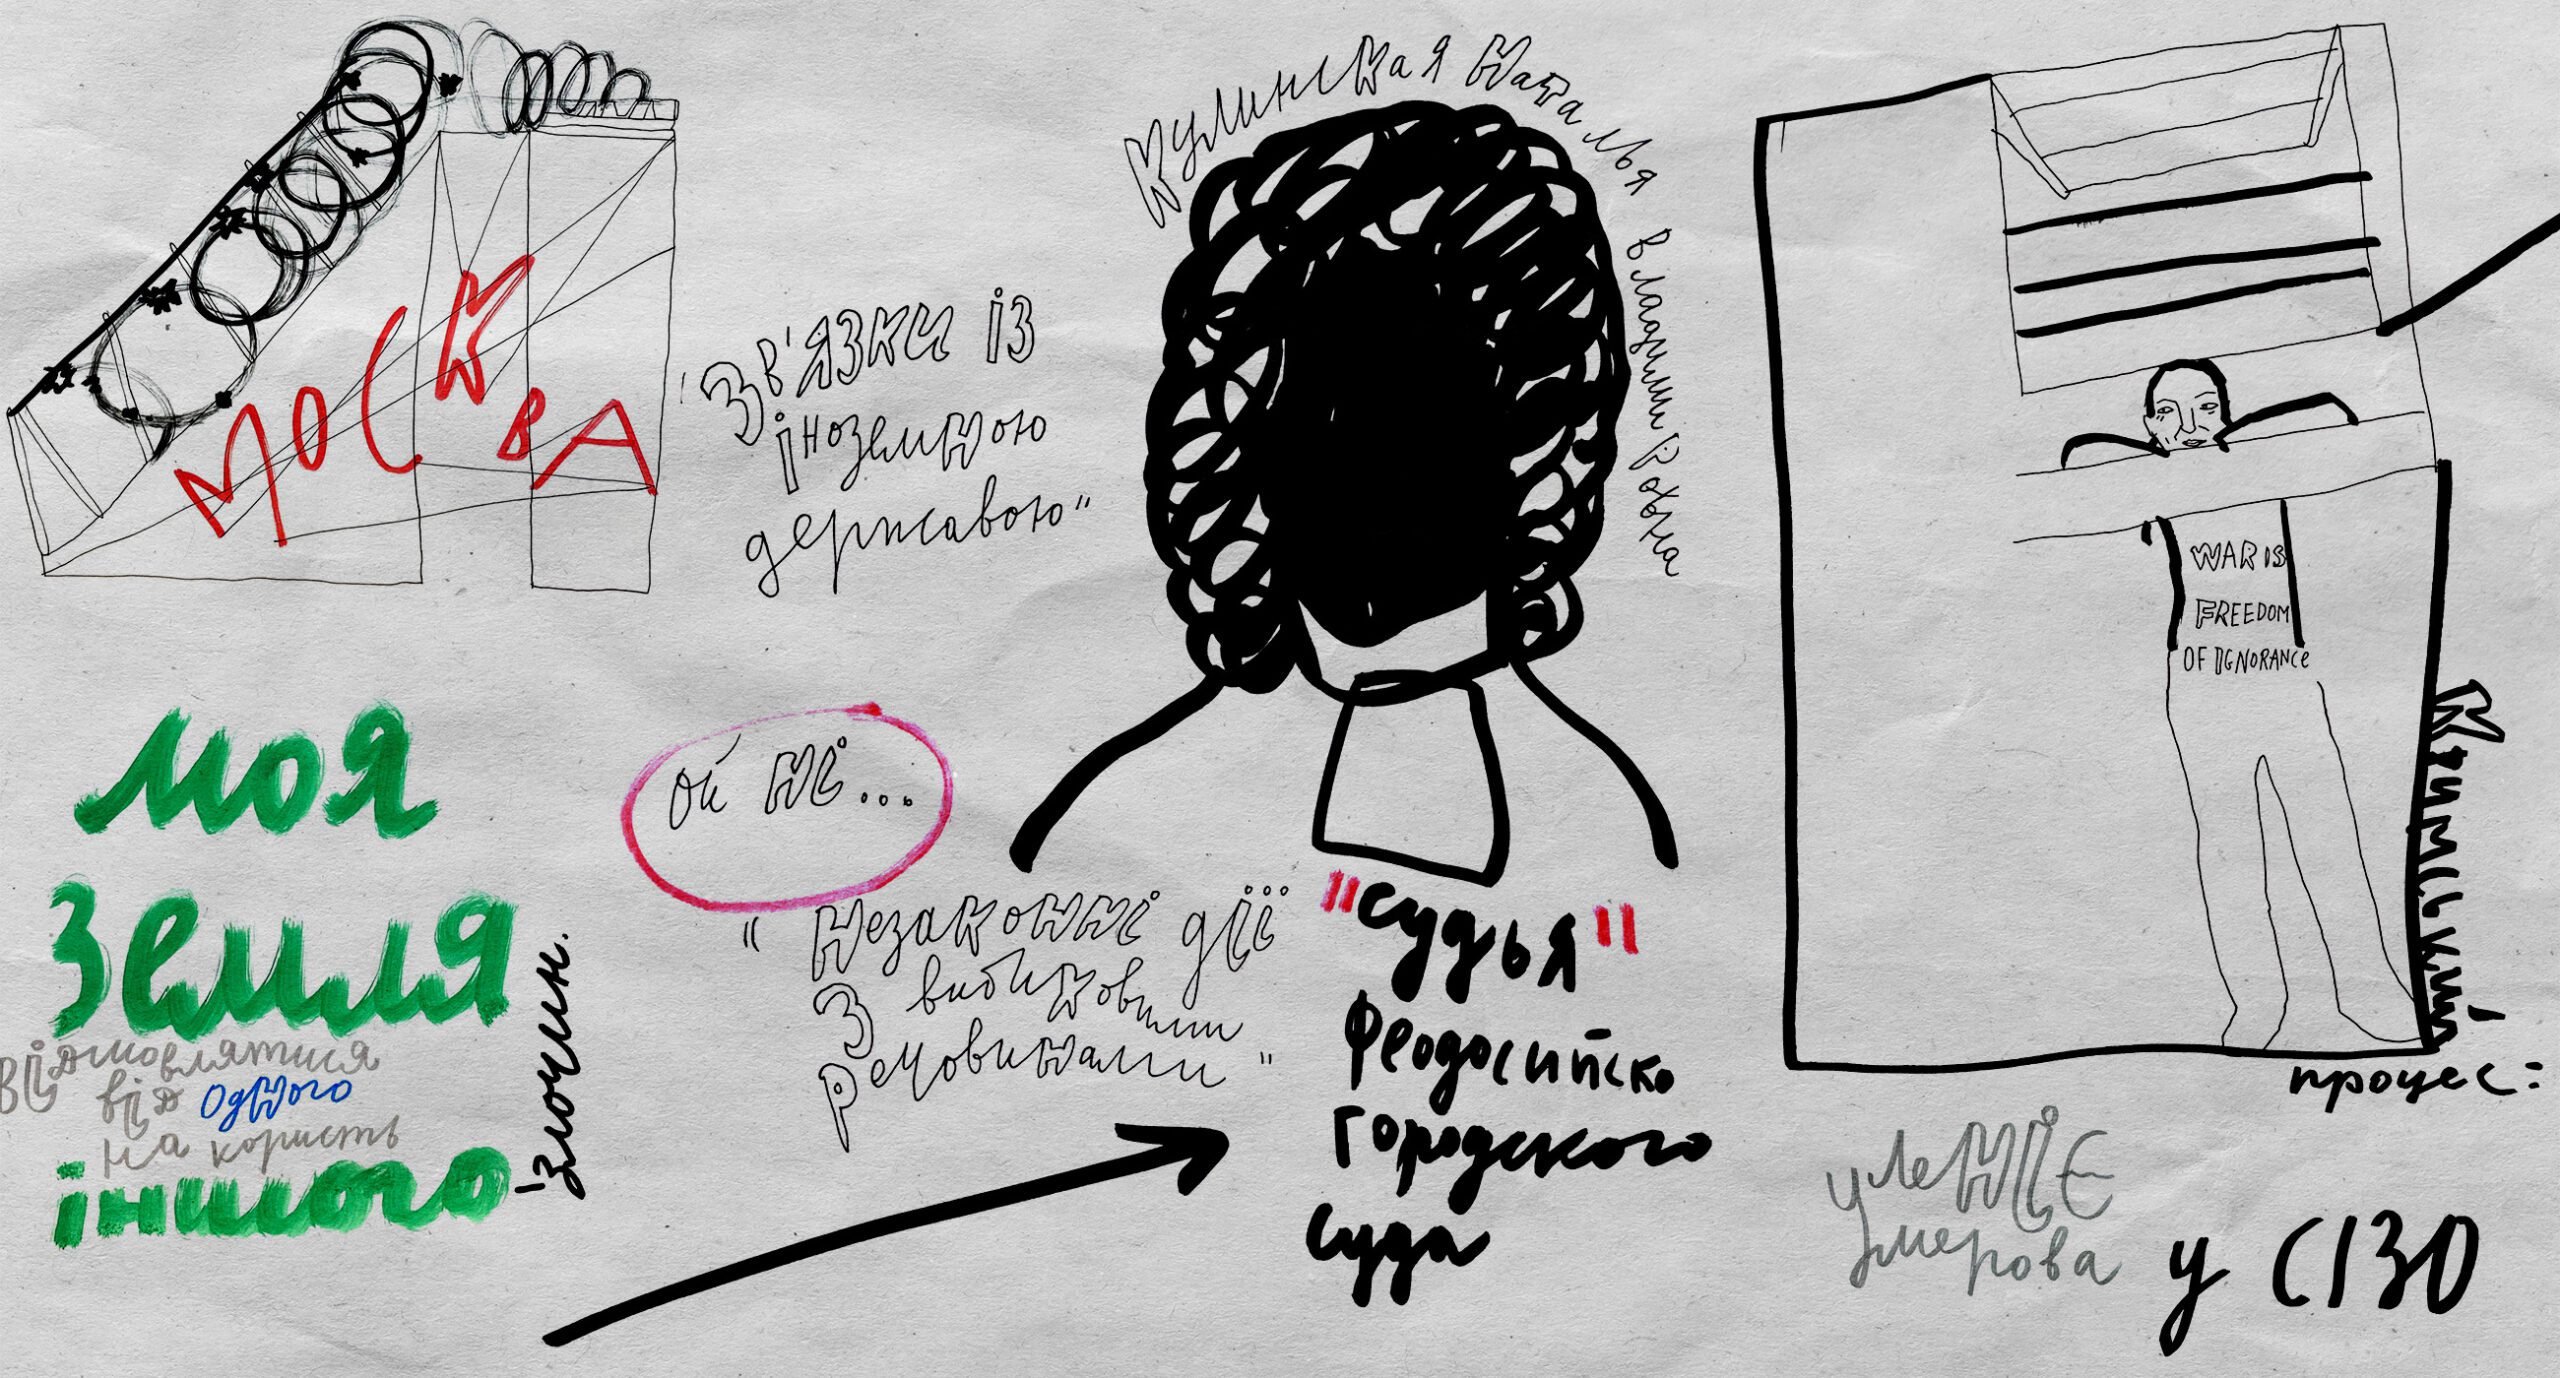 МОСКВА
"Зв'язки із
іноземною
державою"
Кулинская Наталья Владимировна
ой ні...
"Незаконні дії
з вибуховими
речовинами"
"Судья"
Феодосийско
Городского
Суда
моя
земля
відмовлятися
від одного
на користь
іншого
- злочин.
WAR IS
FREEDOM
OF IGNORANCE
Кримський
процес:
Умерова
у СІЗО